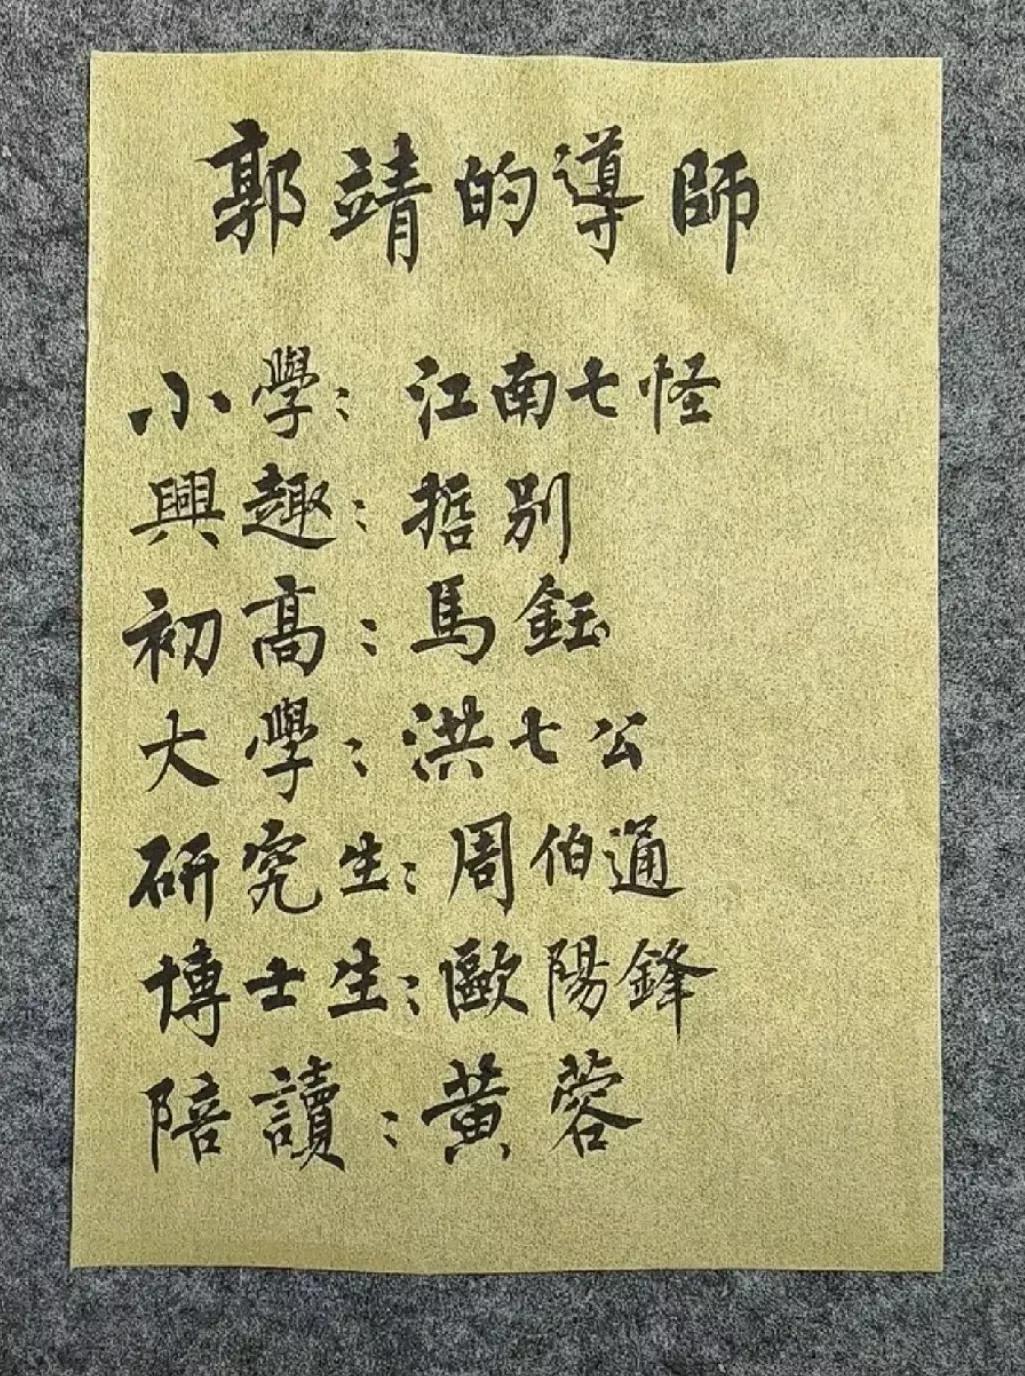 郭靖的導師
小學：江南七怪
興趣：哲別
初高：馬鈺
大學：洪七公
研究生：周伯通
博士生：歐陽鋒
陪讀：黃蓉